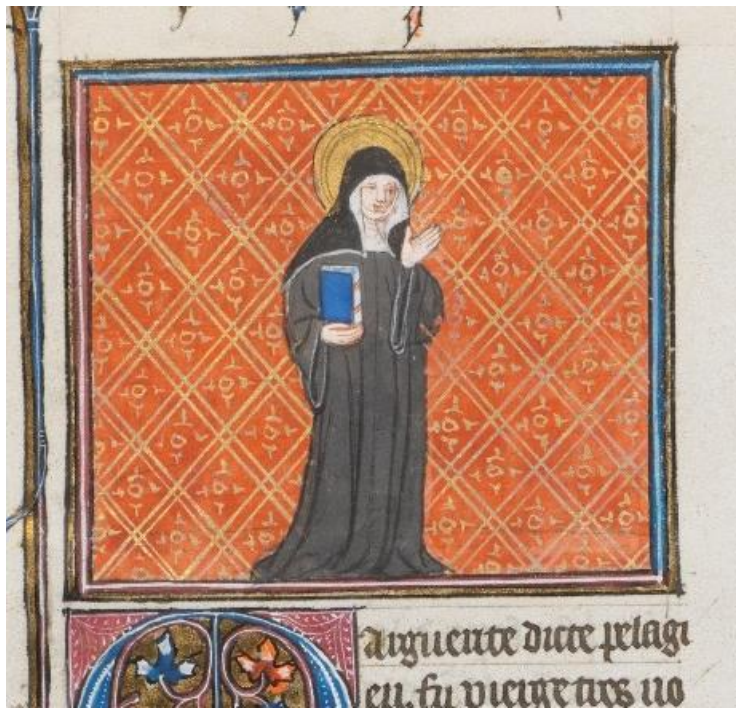 Marguerite dicte pelagi
en. fu vierge tres no